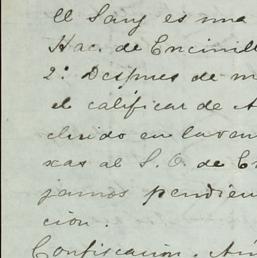 el Sauz es una
Hac. de Encinill
2º Despues de m
el calificar de A
cluido en la ven
xas al S. O. de En
jamos pendien
cion.
Confiscacion. Aún